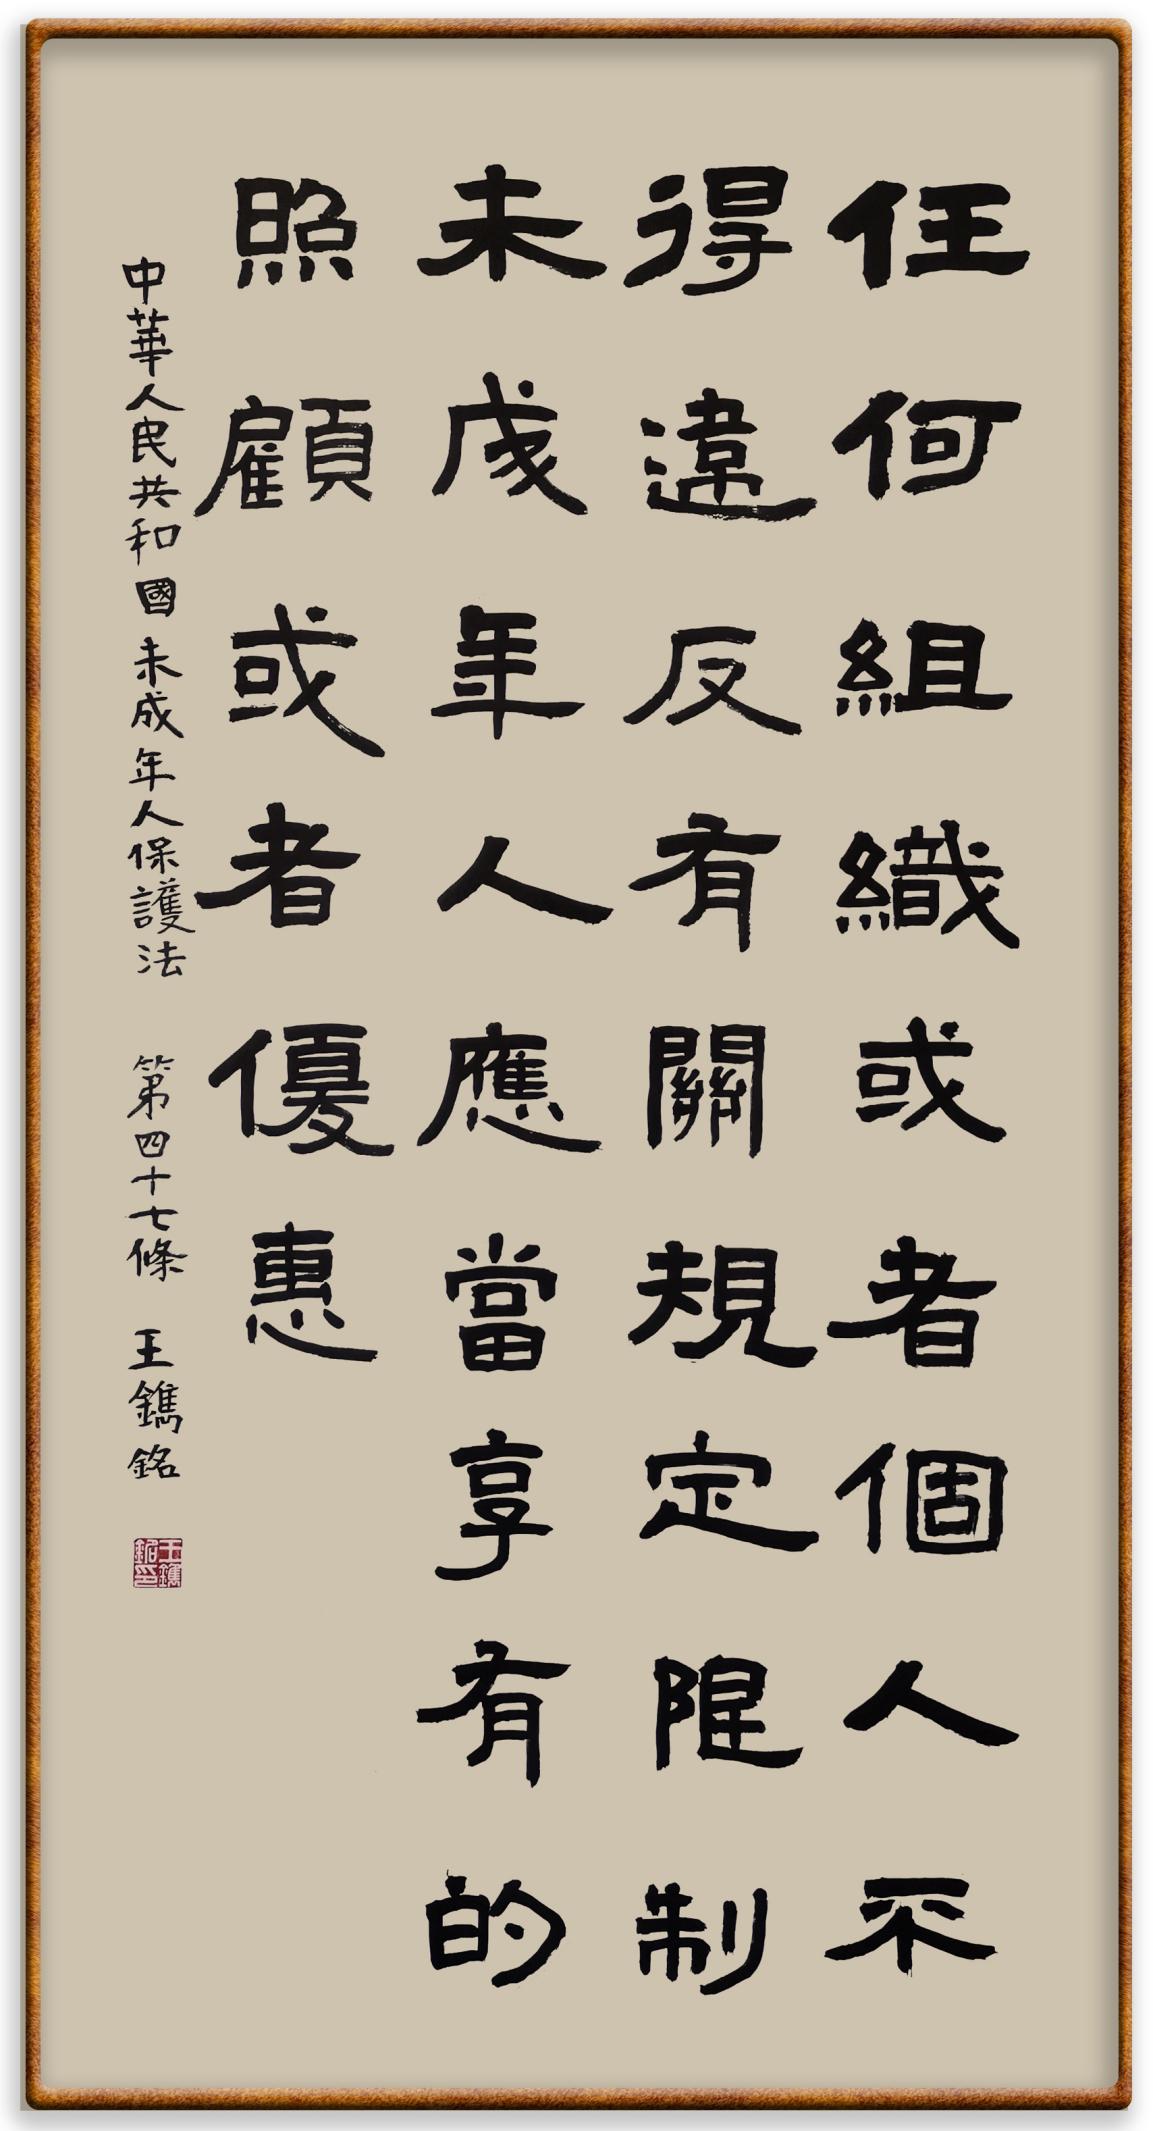 任何組織或者個人不
得違反有關規定限制
未成年人應當享有的
照顧或者優惠
中華人民共和國未成年人保護法 第四十七條 王鐫銘
王鐫銘印